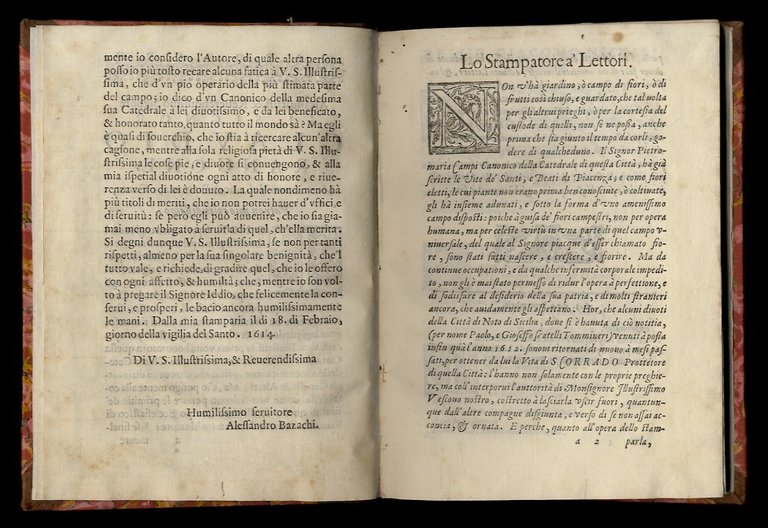 mente io considero l'Autore, di quale altra persona
posso io più tosto recare alcuna fatica à V. S. Illustris-
sima, che d'vn pio operario della più stimata parte
del campo; io dico d'vn Canonico della medesima
sua Catedrale à lei diuotissimo, e da lei beneficato,
& honorato tanto, quanto tutto il mondo sà? Ma egli
è quasi di souerchio, che io stia à ricercare alcun'altra
cagione, mentre alla sola religiosa pietà di V. S. Illu-
strissima le cose pie, e diuote si conuengono, & alla
mia ispetial diuotione ogni atto di honore, e riue-
renza verso di lei è douuto. La quale nondimeno hà
più titoli di meriti, che io non potrei hauer d'vffici, e
di seruitù: se però egli può auuenire, che io sia gia-
mai meno vbligato à seruirla di quel, ch'ella merita.
Si degni dunque V. S. Illustrissima, se non per tanti
rispetti, almeno per la sua singolare benignità, che'l
tutto vale, e richiede, di gradire quel, che io le offero
con ogni affetto, & humiltà; che, mentre io son vol-
to à pregare il Signore Iddio, che felicemente la con-
serui, e prosperi, le bacio ancora humilissimamente
le mani. Dalla mia stamparia il di 18. di Febraio,
giorno della vigilia del Santo. 1614.
Di V. S. Illustrissima, & Reuerendissima
Humilissimo seruitore
Alessandro Bazachi.
Lo Stampatore a' Lettori.
NOn v'hà giardino, ò campo di fiori, ò di
frutti così chiuso, e guardato, che tal uolta
per gli altrui prieghi, ò per la cortesia del
custode di quelli, non se ne possa, anche
prima che sia giunto il tempo da corli, go-
dere di qualcheduno. Il Signor Pietro-
maria Campi Canonico della Catedrale di questa Città, hà già
scritte le Vite de' Santi, e Beati di Piacenza; e come fiori
eletti, le cui piante non erano prima ben conosciute, ò coltiuate,
gli hà insieme adunati, e sotto la forma d'vno amenissimo
campo disposti: poiche à guisa de' fiori campestri, non per opera
humana, ma per celeste virtù in vna parte di quel campo v-
niuersale, del quale al Signore piacque d'esser chiamato fio-
re, sono stati fatti nascere, e crescere, e fiorire. Ma da
continue occupationi, e da qualche infermità corporale impedi-
to, non gli è mai stato permesso di ridur l'opera à perfettione, e
di sodisfare al desiderio della sua patria, e di molti stranieri
ancora, che auidamente gli aspettano. Hor, che alcuni diuoti
della Città di Noto di Sicilia, doue si è hauuta di ciò notitia,
(per nome Paolo, e Gioseffo fratelli Tommineri) venuti à posta
insin quà l'anno 1612. sono ui ritornati di nuouo à mesi pas-
sati, per ottener da lui la Vita di S. CORRADO Protettore
di quella Città: l'hanno non solamente con le proprie preghie-
re, ma coll'interporui l'autorità di Monsignore Illustrissimo
Vescouo nostro, costretto à lasciarla vscir fuori, quantun-
que dall'altre compagne disgiunta, e verso di se non assai ac-
concia, & ornata. E perche, quanto all'opera dello stam-
a 2 parla,